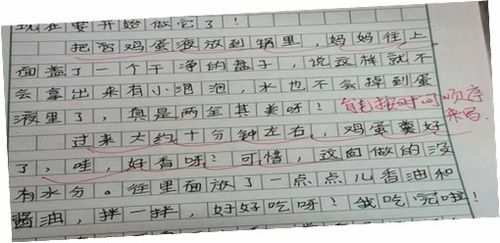 现在要开始做它了！
把窝鸡蛋液放到锅里，妈妈往上
面盖了一个干净的盘子，说这样就不
会拿出来有小泡泡，水也不会掉到蛋
液里了，真是两全其美呀！能按时间顺序
过来大约十分钟左右，鸡蛋羹好 来写。
了，哇，好香呀！可惜，这面做的没
有水分。往里面放了一点点儿香油和
酱油，拌一拌，好好吃呀！我吃完啦！